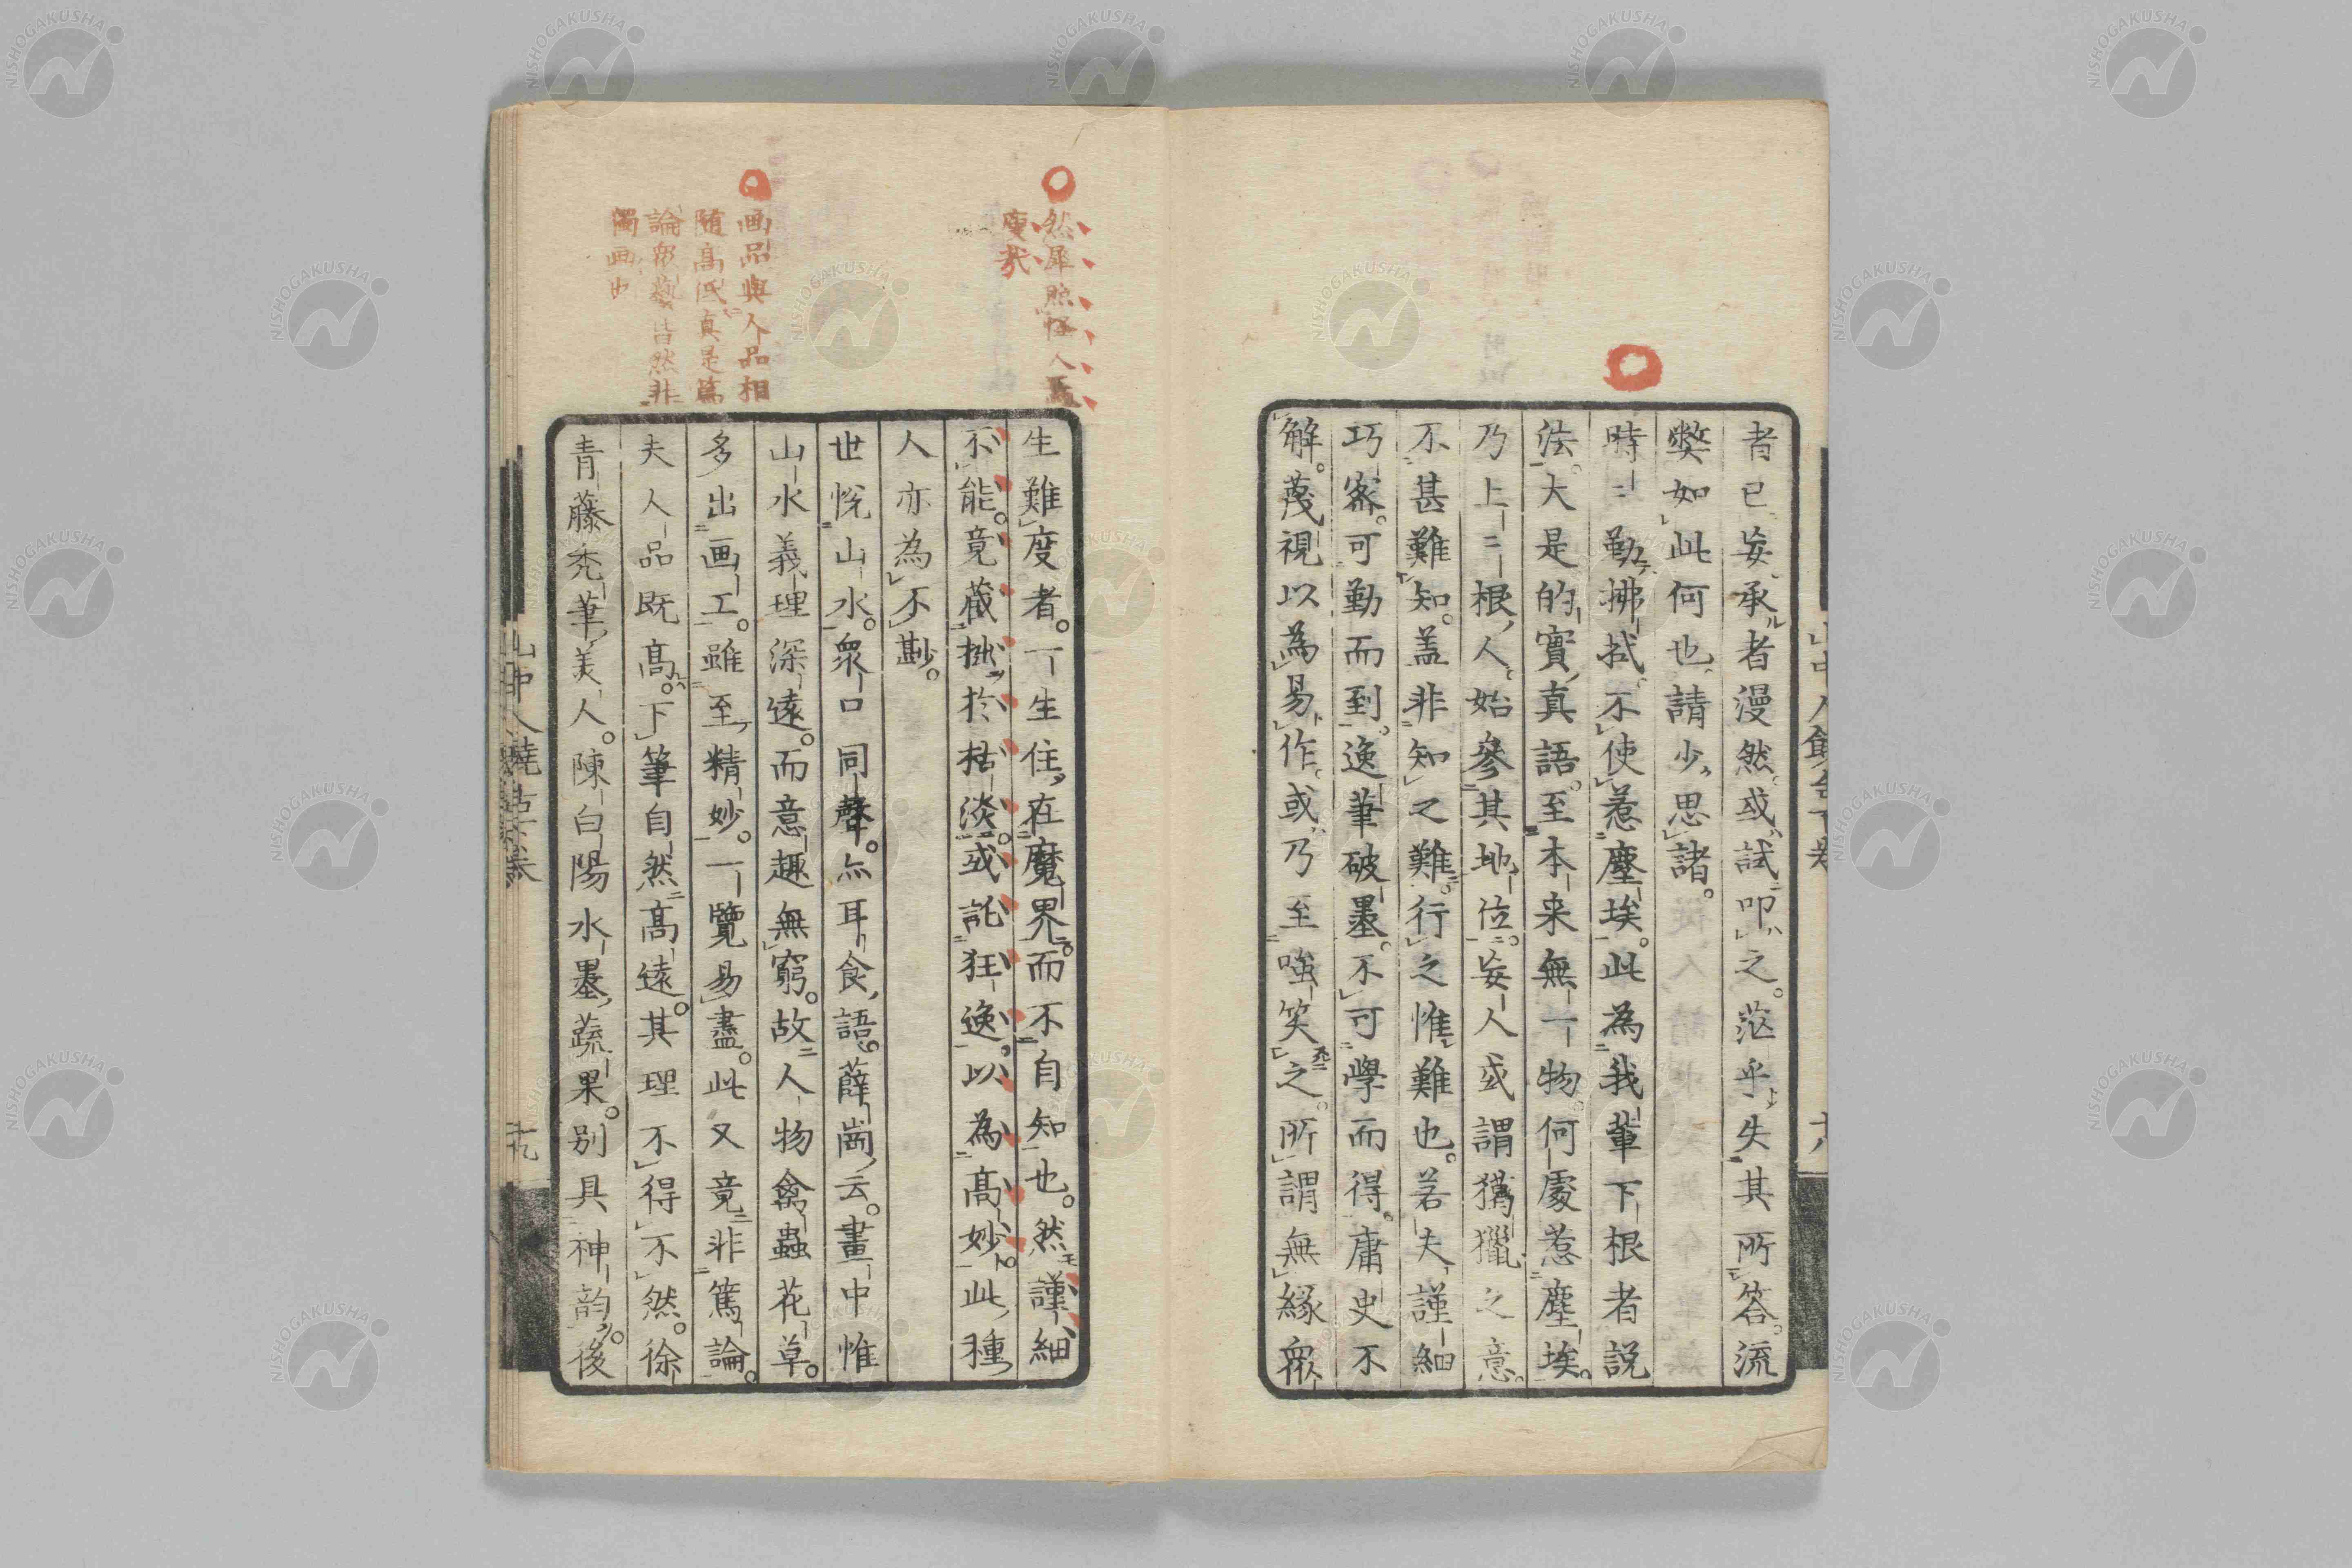 者已妄承者漫然或試叩之茫乎失其所答流
弊如此何也請少思諸
時二勤拂拭不使惹塵埃此為我輩下根者説
法大是的實真語至本来無一物何處惹塵埃
乃上二根人始參其地位妄人或謂獦獵之意
不甚難知蓋非知之難行之惟難也若夫謹細
巧密可勤而到逸筆破墨不可學而得庸史不
解蔑視以為易作或乃至嗤笑之所謂無縁衆
然犀照怪人焉
廋哉
画品與人品相
随高低真是篤
論衆藝皆然非
獨画也
生難度者一生住在魔界而不自知也然謹細
不能竟蔵拙於枯淡或託狂逸以為高妙此種
人亦為不尠
世悦山水衆口同聲亦耳食語薛崗云畫中惟
山水義理深遠而意趣無窮故人物禽蟲花草
多出画工雖至精妙一覽易盡此又竟非篤論
夫人品既高下筆自然高遠其理不得不然徐
青藤禿筆美人陳白陽水墨蔬果別具神韵後
山中人饒舌下巻
十九
NISHOGAKUSHA